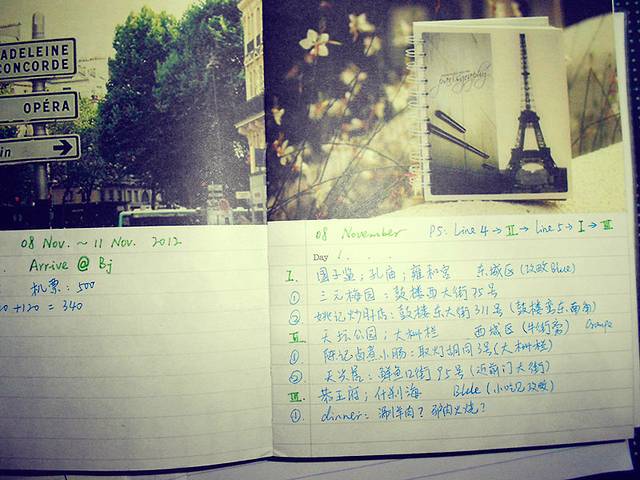 ADELEINE
CONCORDE
OPÉRA
08 Nov. ~ 11 Nov. 2012
Arrive @ Bj
机票: 500
0 +120 = 340
photography
08 November PS: Line 4 → II → Line 5 → I → III
Day 1.....
I. 国子监; 孔庙; 雍和宫 东城区 (攻略 Blue)
① 三元梅园: 鼓楼西大街75号
② 姚记炒肝店: 鼓楼东大街311号 (鼓楼湾东南角)
II. 天坛公园; 大栅栏 西城区 (牛街) Orange
① 陈记卤煮小肠: 取灯胡同3号 (大栅栏)
② 天兴居: 鲜鱼口街95号 (近前门大街)
III. 恭王府; 什刹海 Blue (小吃见攻略)
①. dinner: 涮羊肉? 驴肉火烧?